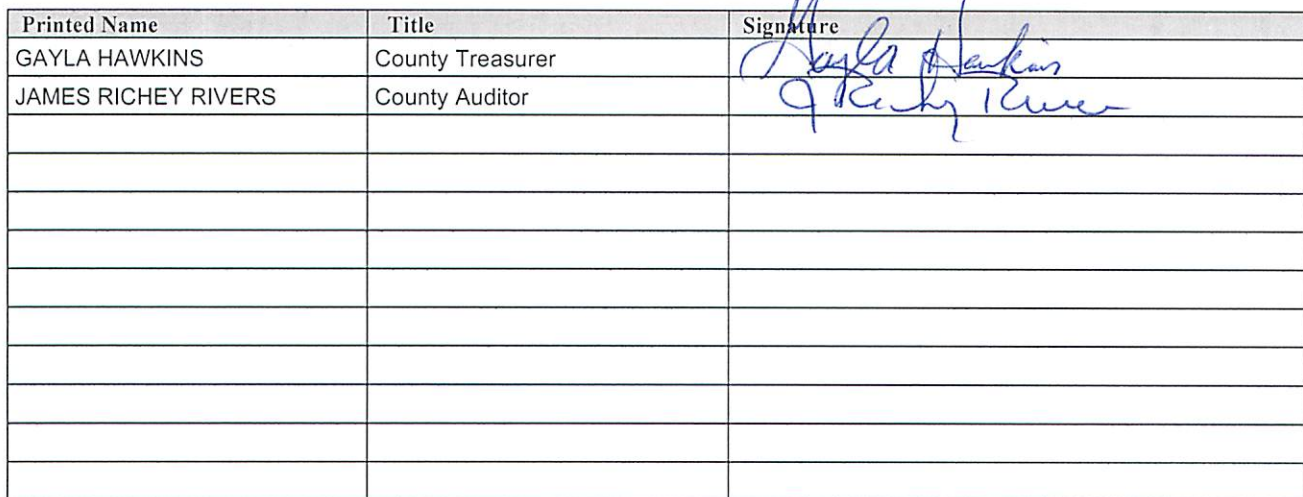 Printed Name Title Signature
GAYLA HAWKINS County Treasurer Gayla Hawkins
JAMES RICHEY RIVERS County Auditor J Richey Rivers